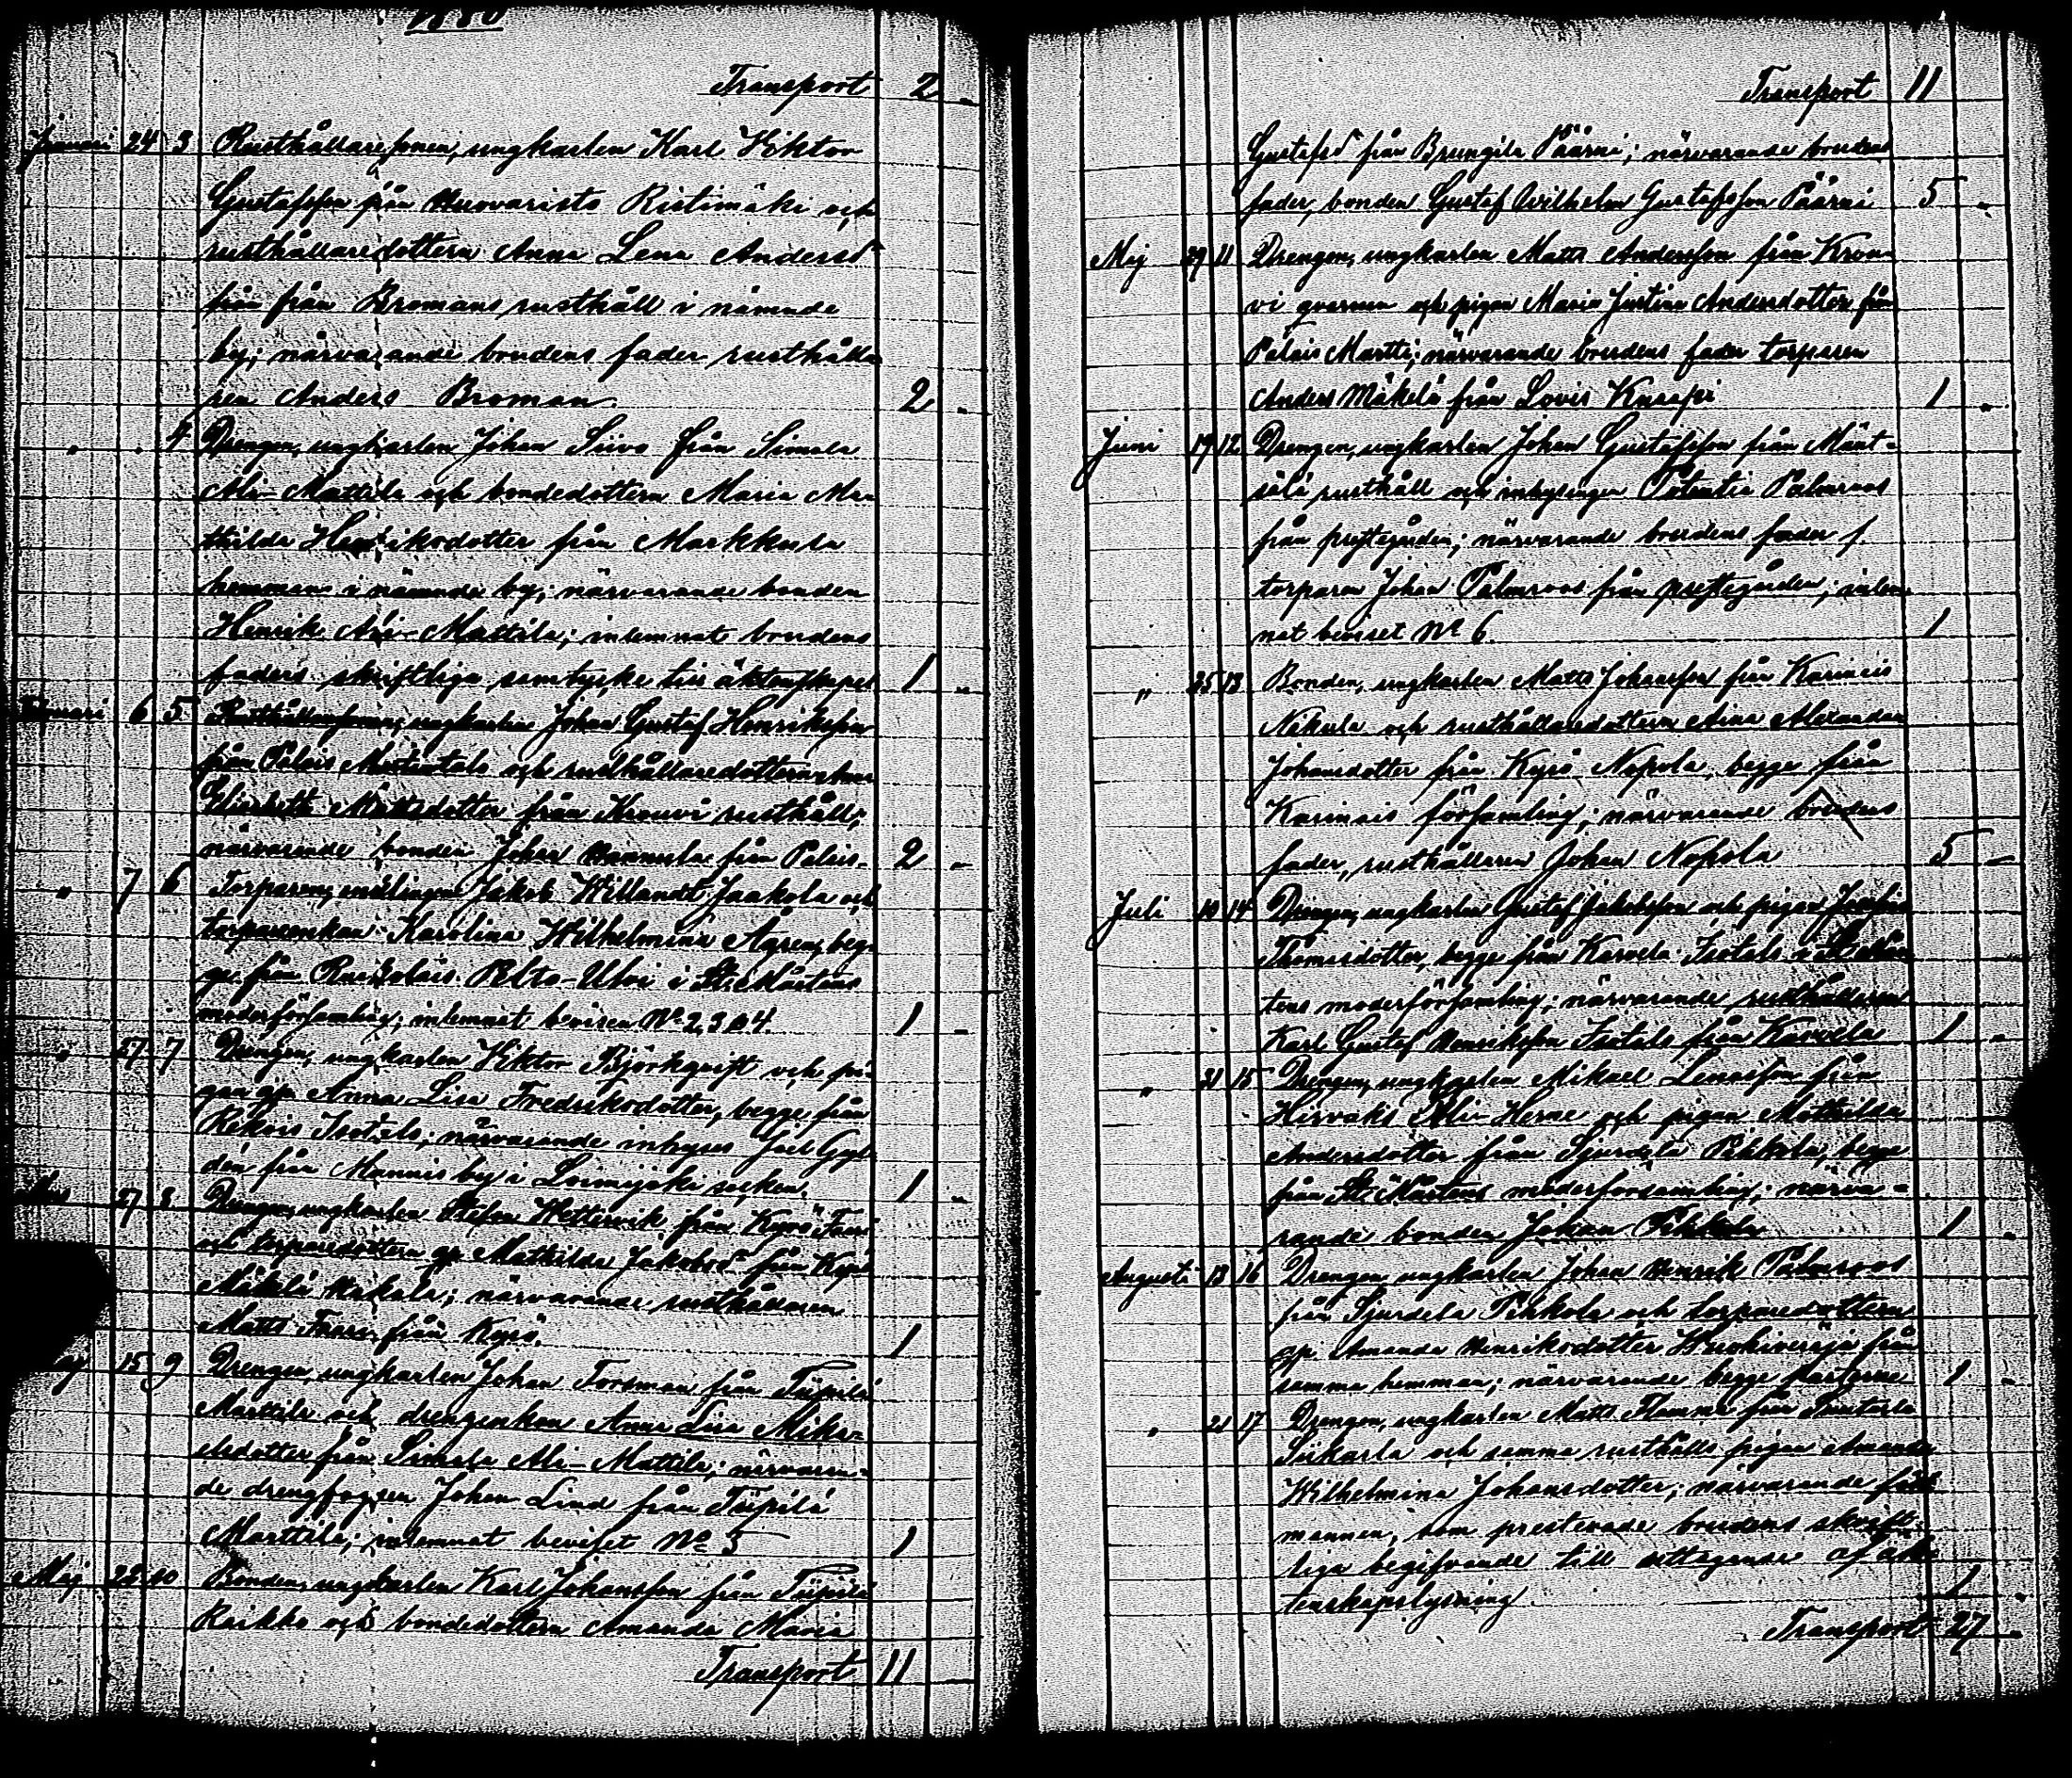 1880
Transport 2 -
Januari 24 3 Rusthållaresonen, ungkarlen Karl Viktor
Gustafsson från Huovaristo Ristimäki och
rusthållaredottern Anna Lena Andersdr
från Bromans rusthåll i nämnde
by; närvarande brudens fader rusthålla
ren Anders Broman. 2 -
" . 4 Drengen, ungkarlen Johan Siivo från Simala
Ali-Mattila och bondedottern Maria Ma
thilda Henriksdotter från Markkula
hemman i nämnda by; närvarande bonden
Henrik Ali-Mattila; inlemnat brudens
faders skriftliga samtycke till äktenskapet 1 -
Februari 6 5 Rusthållaresonen, ungkarlen Johan Gustaf Henriksson
från Palais och rusthållaredottern
Elisabeth Mattsdotter från Krouvi rusthåll;
närvarande bonden Johan Hannula från Palais - 2 -
" 7 6 Torparen, enklingen Jakob Willandt Jaakola och
torpareenkan Karolina Wilhelmina Ågren, beg-
ge från Ruskolais Pelto-Uti i St. Mårtens
moderförsamling; inlemnat bevisen No 2, 3 o 4 1 -
" 27 7 Drengen, ungkarlen Viktor Björkqvist och pi-
gan Anna Lisa Fredriksdotter, begge från
Rekois Isotalo; närvarande inhyses Joel Gyl-
dén från Mannis by i Loimijoki socken. 1 -
27 8 Drengen, ungkarlen Stefan Wettervik från Kyrö
och torparedottern Mathilda Jakobsd från Kyrö
Mäkilä Hakala; närvarande rusthållaren
Matts från Kyrö. 1
15 9 Drengen, ungkarlen Johan Forsman från Tiipilä
Marttila och drengenkan Anna Lisa Mika-
elsdotter från Simala Ali-Mattila; närvaran-
de drengfogden Johan Lind från Tiipilä
Marttila; inlemnat beviset No 5 1
Maj 25 10 Bonden, ungkarlen Karl Johansson från Tiipilä
Raikko och bondedottern Amanda Maria
Transport 11
Transport 11
Gustafsd från Brungila Päärni; närvarande brudens
fader, bonden Gustaf Wilhelm Gustafsson Päärni 5 -
Maj 29 11 Drengen, ungkarlen Matts Andersson från Krou-
vi qvarnen och pigan Maria Justina Andersdotter från
Palais Martti; närvarande brudens fader torparen
Anders Mäkelä från Lovis Knaapi 1 -
Juni 19 12 Drengen, ungkarlen Johan Gustafsson från Mänt-
sälä rusthåll och inhysingen Potentia Palmroos
från prestgården; närvarande brudens fader f.
torparen Johan Palmroos från prestgården; inlem-
nat beviset No 6 1
" 25 13 Bonden, ungkarlen Matts Johansson från Karinais
Nikula och rusthållaredottern Aina Alexandra
Johansdotter från Kyrö Nopola, begge från
Karinais församling; närvarande brudens
fader, rusthållaren Johan Nopola 5 -
Juli 10 14 Drengen, ungkarlen Gustaf Jakobsson och pigan Josefina
Thomasdotter, begge från Karvela Isotalo i St. Mår-
tens moderförsamling; närvarande rusthållaren
Karl Gustaf Henriksson Isotalo från Karvela 1 -
" 31 15 Drengen, ungkarlen Mikael Lennisson från
Hirvaks Ali-Herne och pigan Mathilda
Andersdotter från Sjurdela Pihkola, begge
från St. Mårtens moderförsamling; närva-
rande bonden Johan Pihkola 1 -
Augusti 13 16 Drengen, ungkarlen Johan Henrik Palmroos
från Sjurdela Pihkola och torparedottern
Amanda Henriksdotter från
samma hemman; närvarande begge parterne 1 -
" 21 17 Drengen, ungkarlen Matts Flamma från
Siikarla och samma rusthålls pigan Amanda
Wilhelmina Johansdotter; närvarande fäst-
mannen, som presterade brudens skrift-
liga begifvande till uttagande af äk-
tenskapslysning 1 -
Transport 27 -